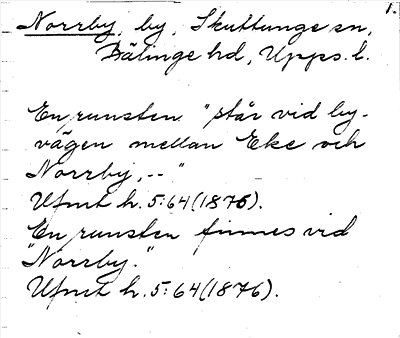 1.
Norrby, by, Skuttunge sn,
Bälinge hd, Upps. l.
En runsten "står vid by-
vägen mellan Eke och
Norrby, -- "
Ufmt h. 5:64 (1876).
En runsten finnes vid
"Norrby."
Ufmt h. 5:64 (1876).